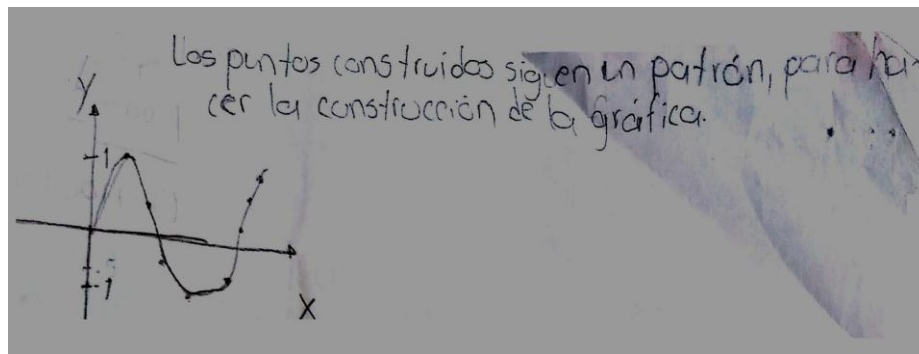 Los puntos construidos siguen un patrón, para ha-
cer la construcción de la gráfica.
Y
1
-1
X